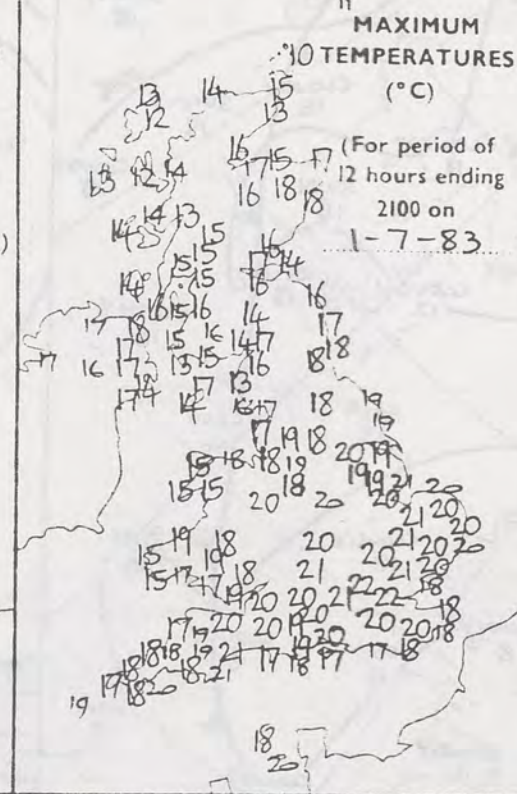 11
MAXIMUM
10 TEMPERATURES
(°C)
(For period of
12 hours ending
2100 on
1-7-83
)
13 14 15
12 13
16 17 15 17
13 12 14 16 18 18
14 14 13
15
15
15 15
14
16 15 16
17 18
17 16 17
15 16
13 15
17 14
17 14
16 14
17 16
16
14
14 17
16
13
16 17
17
18 18
17
18
18
19
19
17 19 18
15 18 18 19
20 19
19 19 21 20
15 15 18
20 20
20 21 20
20
15 19 18
19
20 20 21 20 20
15 17 17 18
21 21 20
19 20 20 21 22 22 18
17 19 20 20 19 20
20 20 18
18
18 18 19 21 17 19 20
18 17 17 18
19 19 18
18 20 18 21
18
20